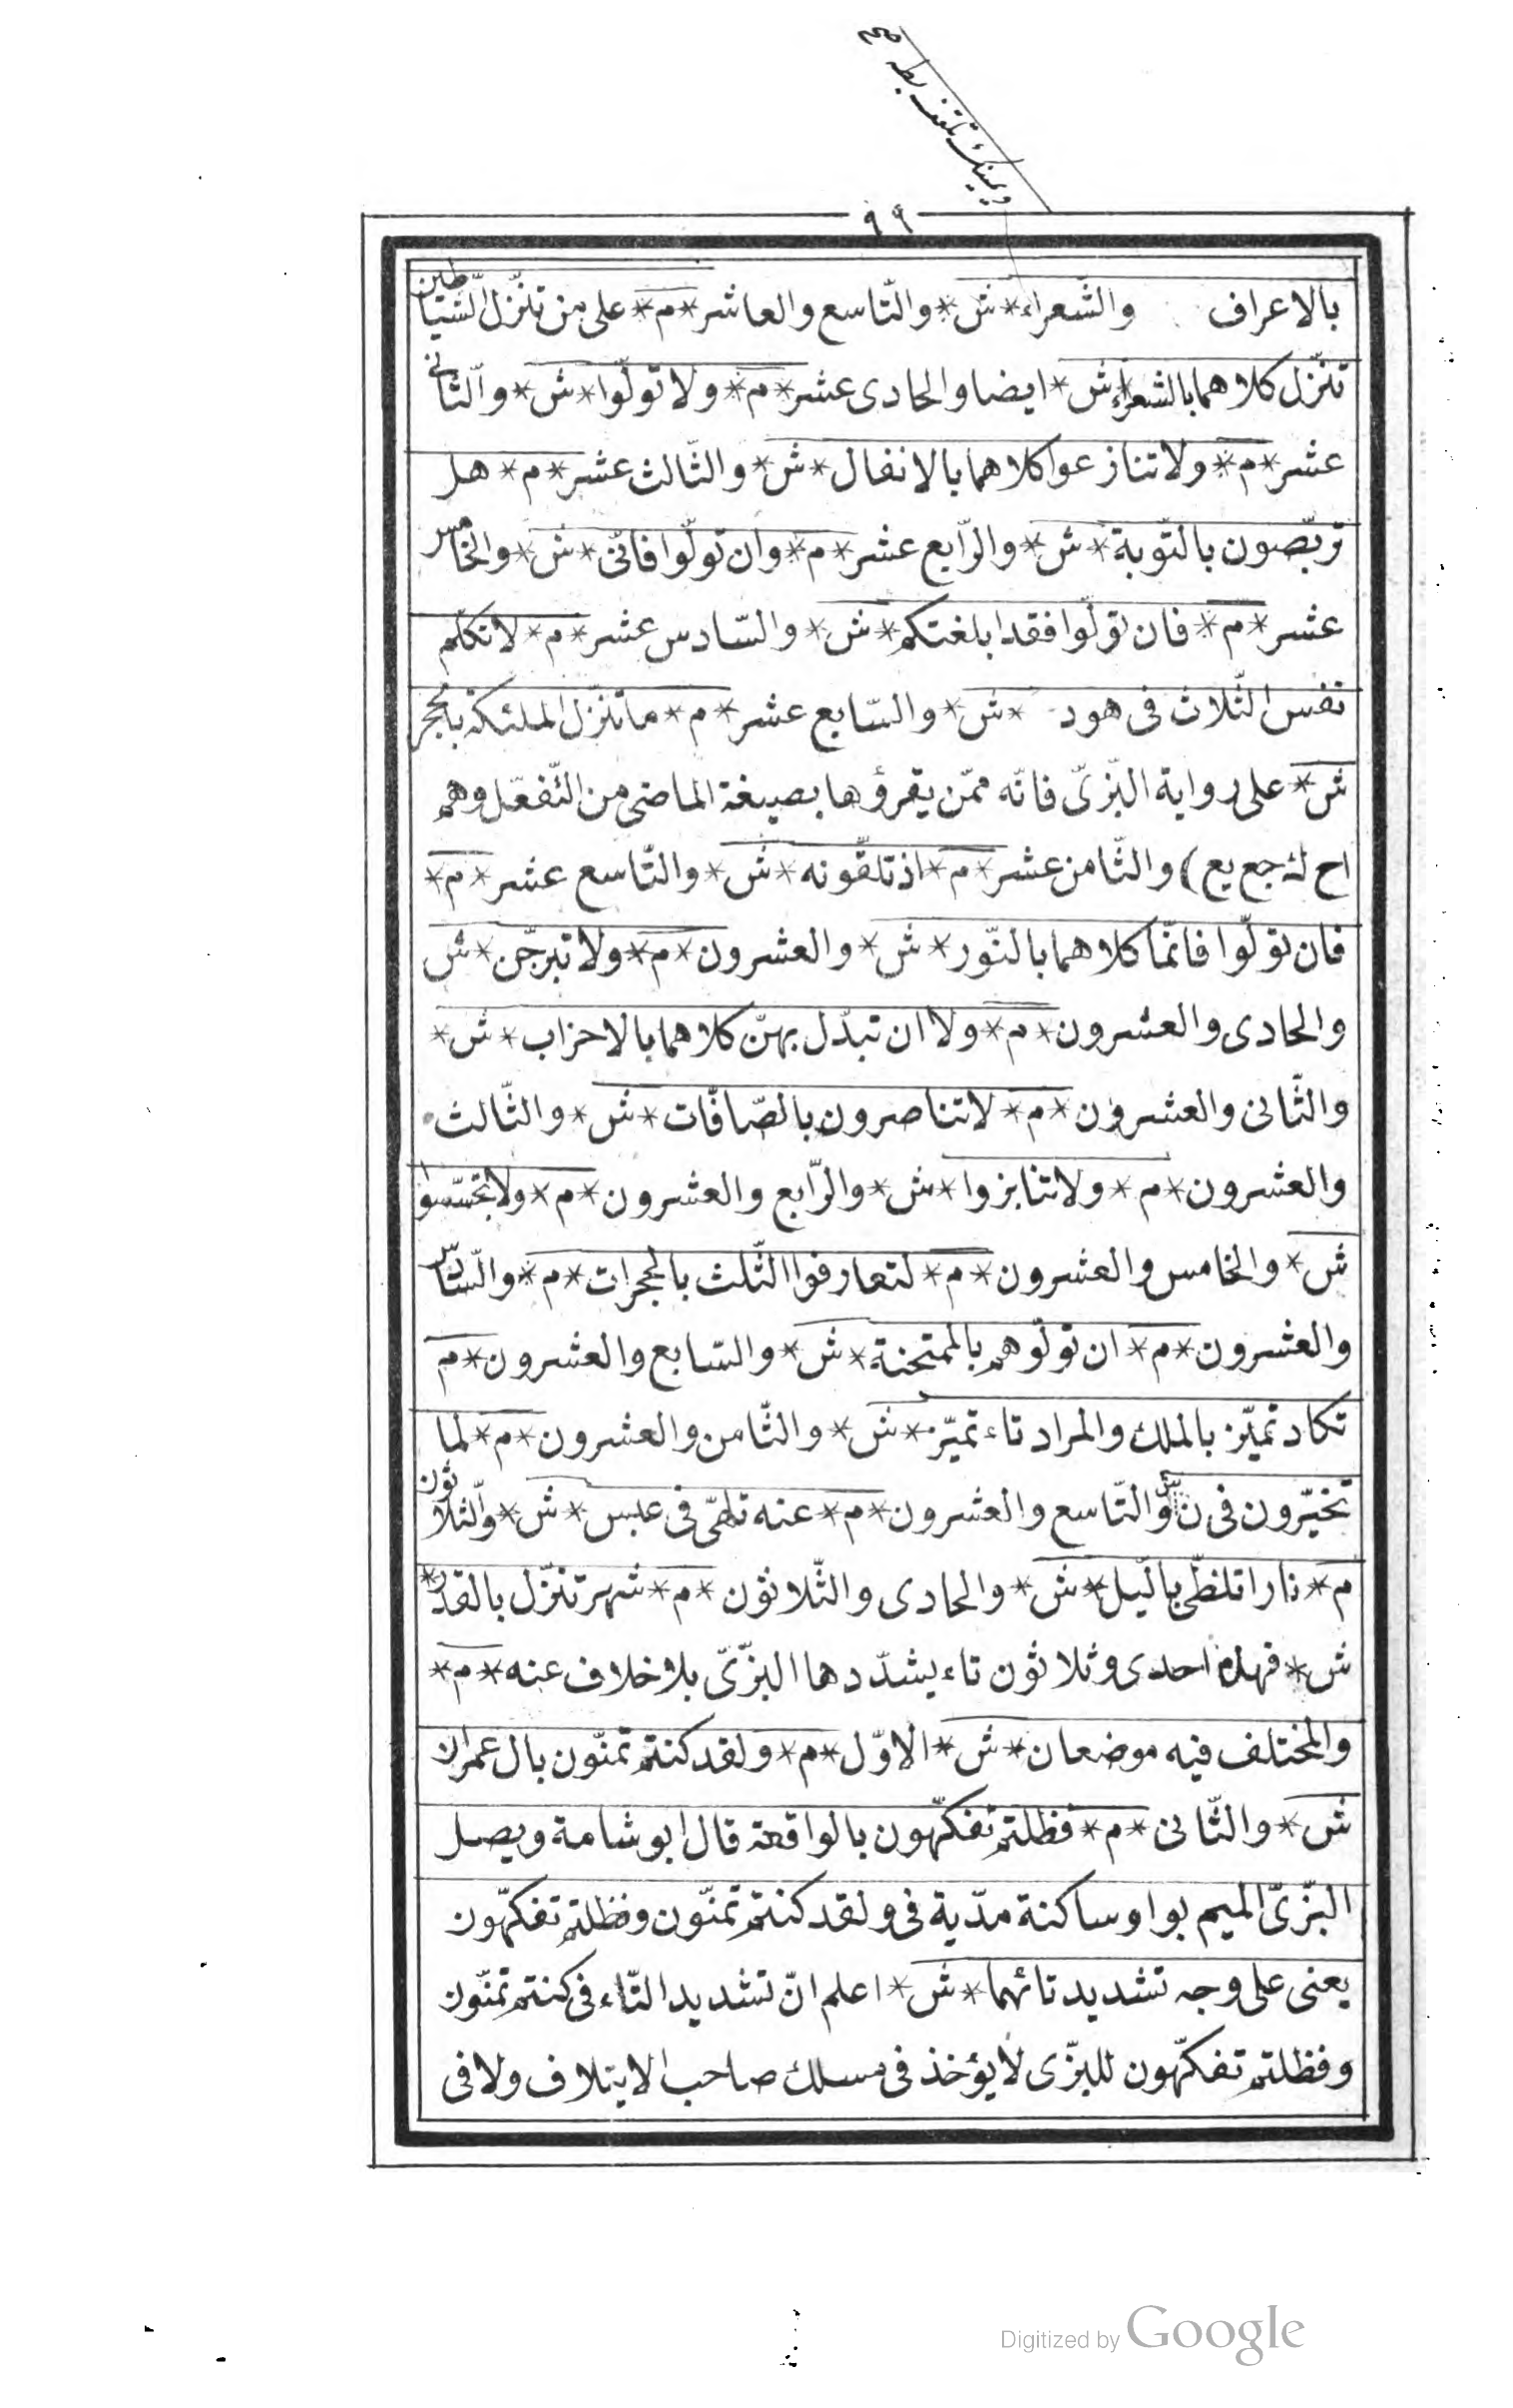 ويمينك تلقف بطه صح
٩٩
بالاعراف والشّعراء * ش * والتّاسع والعاشر * م * على من تنزّل الشّياطين
تنزّل كلاهما بالشعراء ش * ايضا والحادى عشر * م * ولا تولّوا * ش * والثّانى
عشر * م * ولا تنازعوا كلاهما بالانفال * ش * والثّالث عشر * م * هل
تربّصون بالتّوبة * ش * والرّابع عشر * م * وان تولّوا فانّى * ش * والخامس
عشر * م * فان تولّوا فقد ابلغتكم * ش * والسّادس عشر * م * لا تكلّم
نفس الثّلاث فى هود * ش * والسّابع عشر * م * ما تنزّل الملئكة بالحجر
ش * على رواية البزّىّ فانّه ممّن يقرؤها بصيغة الماضى من التّفعّل وهم
والثّامن عشر * م * اذ تلقّونه * ش * والتّاسع عشر * م *
فان تولّوا فانّما كلاهما بالنّور * ش * والعشرون * م * ولا تبرّجن * ش
والحادى والعشرون * م * ولا ان تبدّل بهنّ كلاهما بالاحزاب * ش *
والثّانى والعشرون * م * لا تناصرون بالصّافّات * ش * والثّالث
والعشرون * م * ولا تنابزوا * ش * والرّابع والعشرون * م * ولا تجسّسوا
ش * والخامس والعشرون * م * لتعارفوا الثّلث بالحجرات * م * والسّادس
والعشرون * م * ان تولّوهم بالممتحنة * ش * والسّابع والعشرون * م
تكاد تميّز بالملك والمراد تاء تميّز * ش * والثّامن والعشرون * م * لما
تخيّرون فى ن ش والتّاسع والعشرون * م * عنه تلهّى فى عبس * ش * والثّلاثون
م * نارا تلظّى بالّيل * ش * والحادى والثّلاثون * م * شهر تنزّل بالقدر *
ش * فهذه احدى وثلاثون تاء يشدّدها البزّىّ بلا خلاف عنه * م *
والمختلف فيه موضعان * ش * الاوّل * م * ولقد كنتم تمنّون بال عمران
ش * والثّانى * م * فظلتم تفكّهون بالواقعة قال ابو شامة ويصل
البزّىّ الميم بواو ساكنة مدّية فى ولقد كنتم تمنّون وفظلتم تفكّهون
يعنى على وجه تشديد تائهما * ش * اعلم انّ تشديد التّاء فى كنتم تمنّون
وفظلتم تفكّهون للبزّى لا يؤخذ فى مسلك صاحب الايتلاف ولا فى
Digitized by Google